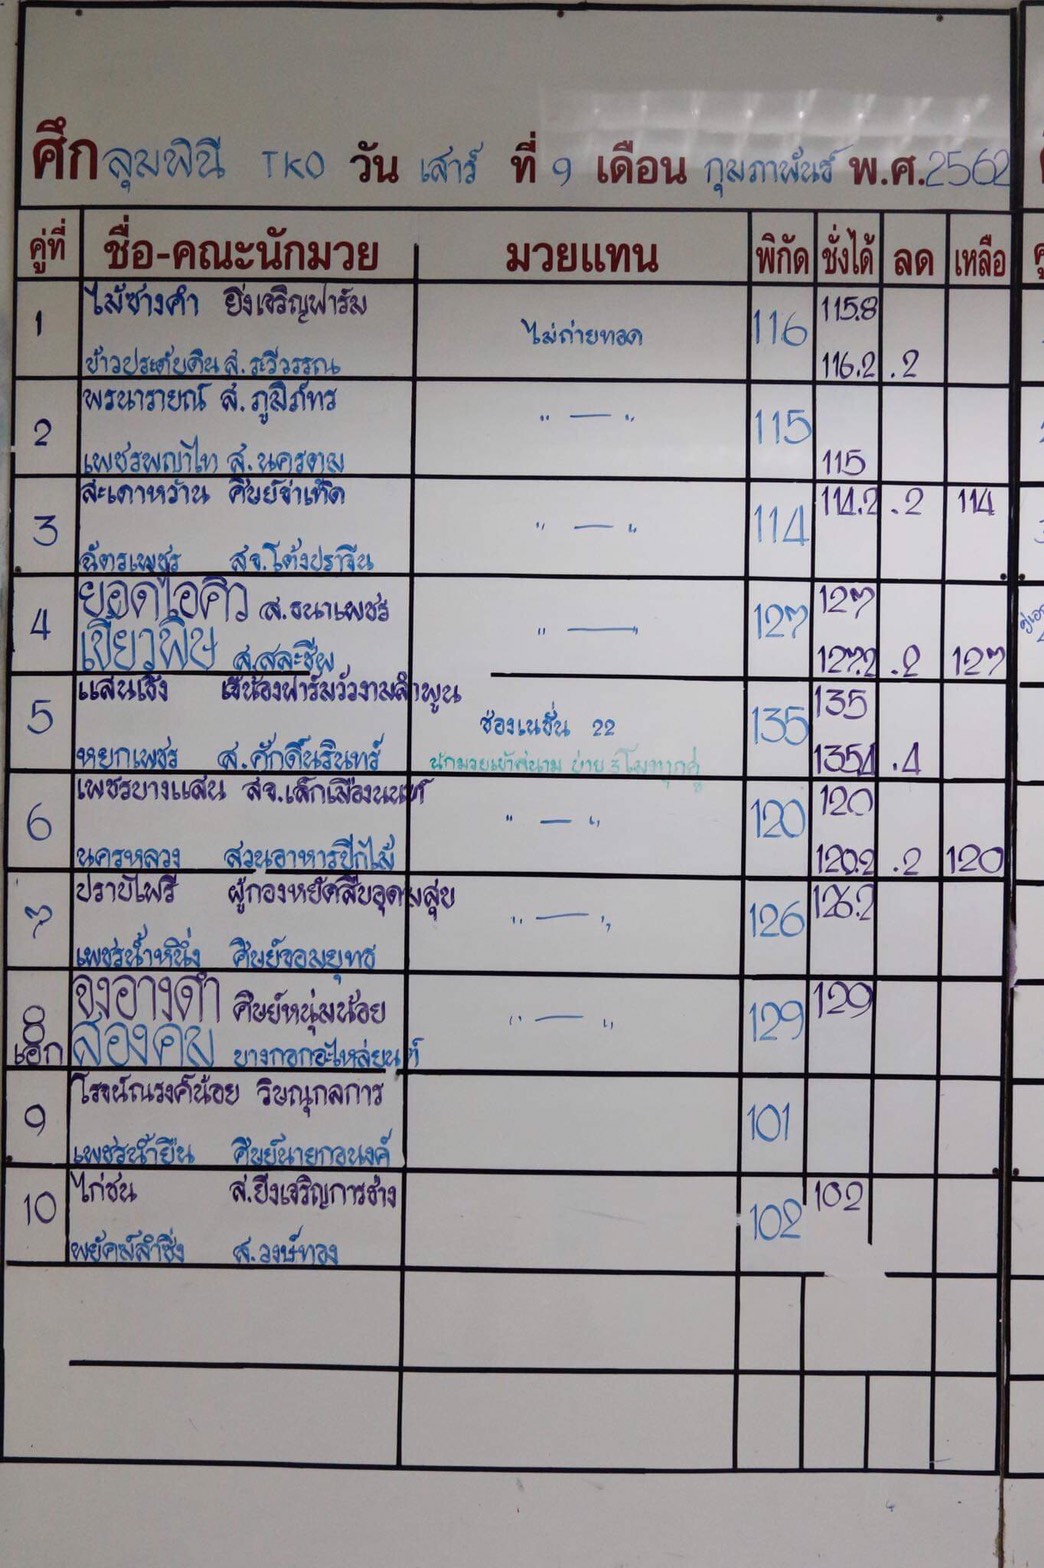 ศึก ลุมพินี TKO วัน เสาร์ ที่ 9 เดือน กุมภาพันธ์ พ.ศ. 2562
คู่ที่ ชื่อ-คณะนักมวย มวยแทน พิกัด ชั่งได้ ลด เหลือ
1 ไม้ซางคำ ยิ่งเจริญฟาร์ม ไม่ถ่ายทอด 116 115.8
ข้าวประดับดิน ส.ระวีวรรณ 116.2 .2
2 พรนารายณ์ ส.ภูมิภัทร " — " 115
เพชรพญาไท ส.นครตม 115
3 สะเดาหวาน ศิษย์จ่าเทิด " — " 114 114.2 .2 114
ฉัตรเพชร สจ.โต้งปราจีน
4 ยอดไอคิว ส.ธนาเพชร " — 127 127
เขี้ยวพิษ ส.สละชีพ 127.2 .2 127
5 แสนเชิง เจ๊น้องฟาร์มวัวงามลำพูน ช่องเนชั่น 22 135 135
หยกเพชร ส.ศักดิ์นรินทร์ นักมวยเข้าสนาม บ่าย 3 โมงทุกคู่ 135.4 .4
6 เพชรบางแสน สจ.เล็กเมืองนนท์ " — " 120 120
นครหลวง สวนอาหารปีกไม้ 120.2 .2 120
7 ปราบไพรี ผู้กองหยัดสืบอุดมสุข " — " 126 126.2
เพชรน้ำหนึ่ง ศิษย์จอมยุทธ
8 จงอางดำ ศิษย์หนุ่มน้อย " — " 129 129
เอก สองคม บางกอกอะไหล่ยนต์
9 โรจน์ณรงค์น้อย วิษณุกลการ 101
เพชรน้ำยืน ศิษย์นายกอนงค์
10 ไก่ชน ส.ยิ่งเจริญการช่าง 102 102
พยัคฆ์ลำชิ่ง ส.วงษ์ทอง